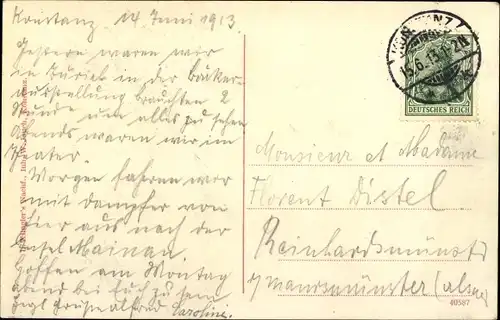 Konstanz, 14 Juni 1913.
Gestern waren wir
in Zürich in der Bäcker
ausstellung brauchten 2
Stunde um alles zu sehen
Abends waren wir im
Teater.
Morgen fahren wir
mit Dampfer von
hier aus nach der
Insel Mainau.
Hoffen am Montag
abend bei Euch zu sein
Grüße Alfred Caroline.
KONSTANZ
DEUTSCHES REICH
Monsieur et Madame
Florent Distel
Reinhardsmünster
b/ Maursmünster (Elsass)
40587